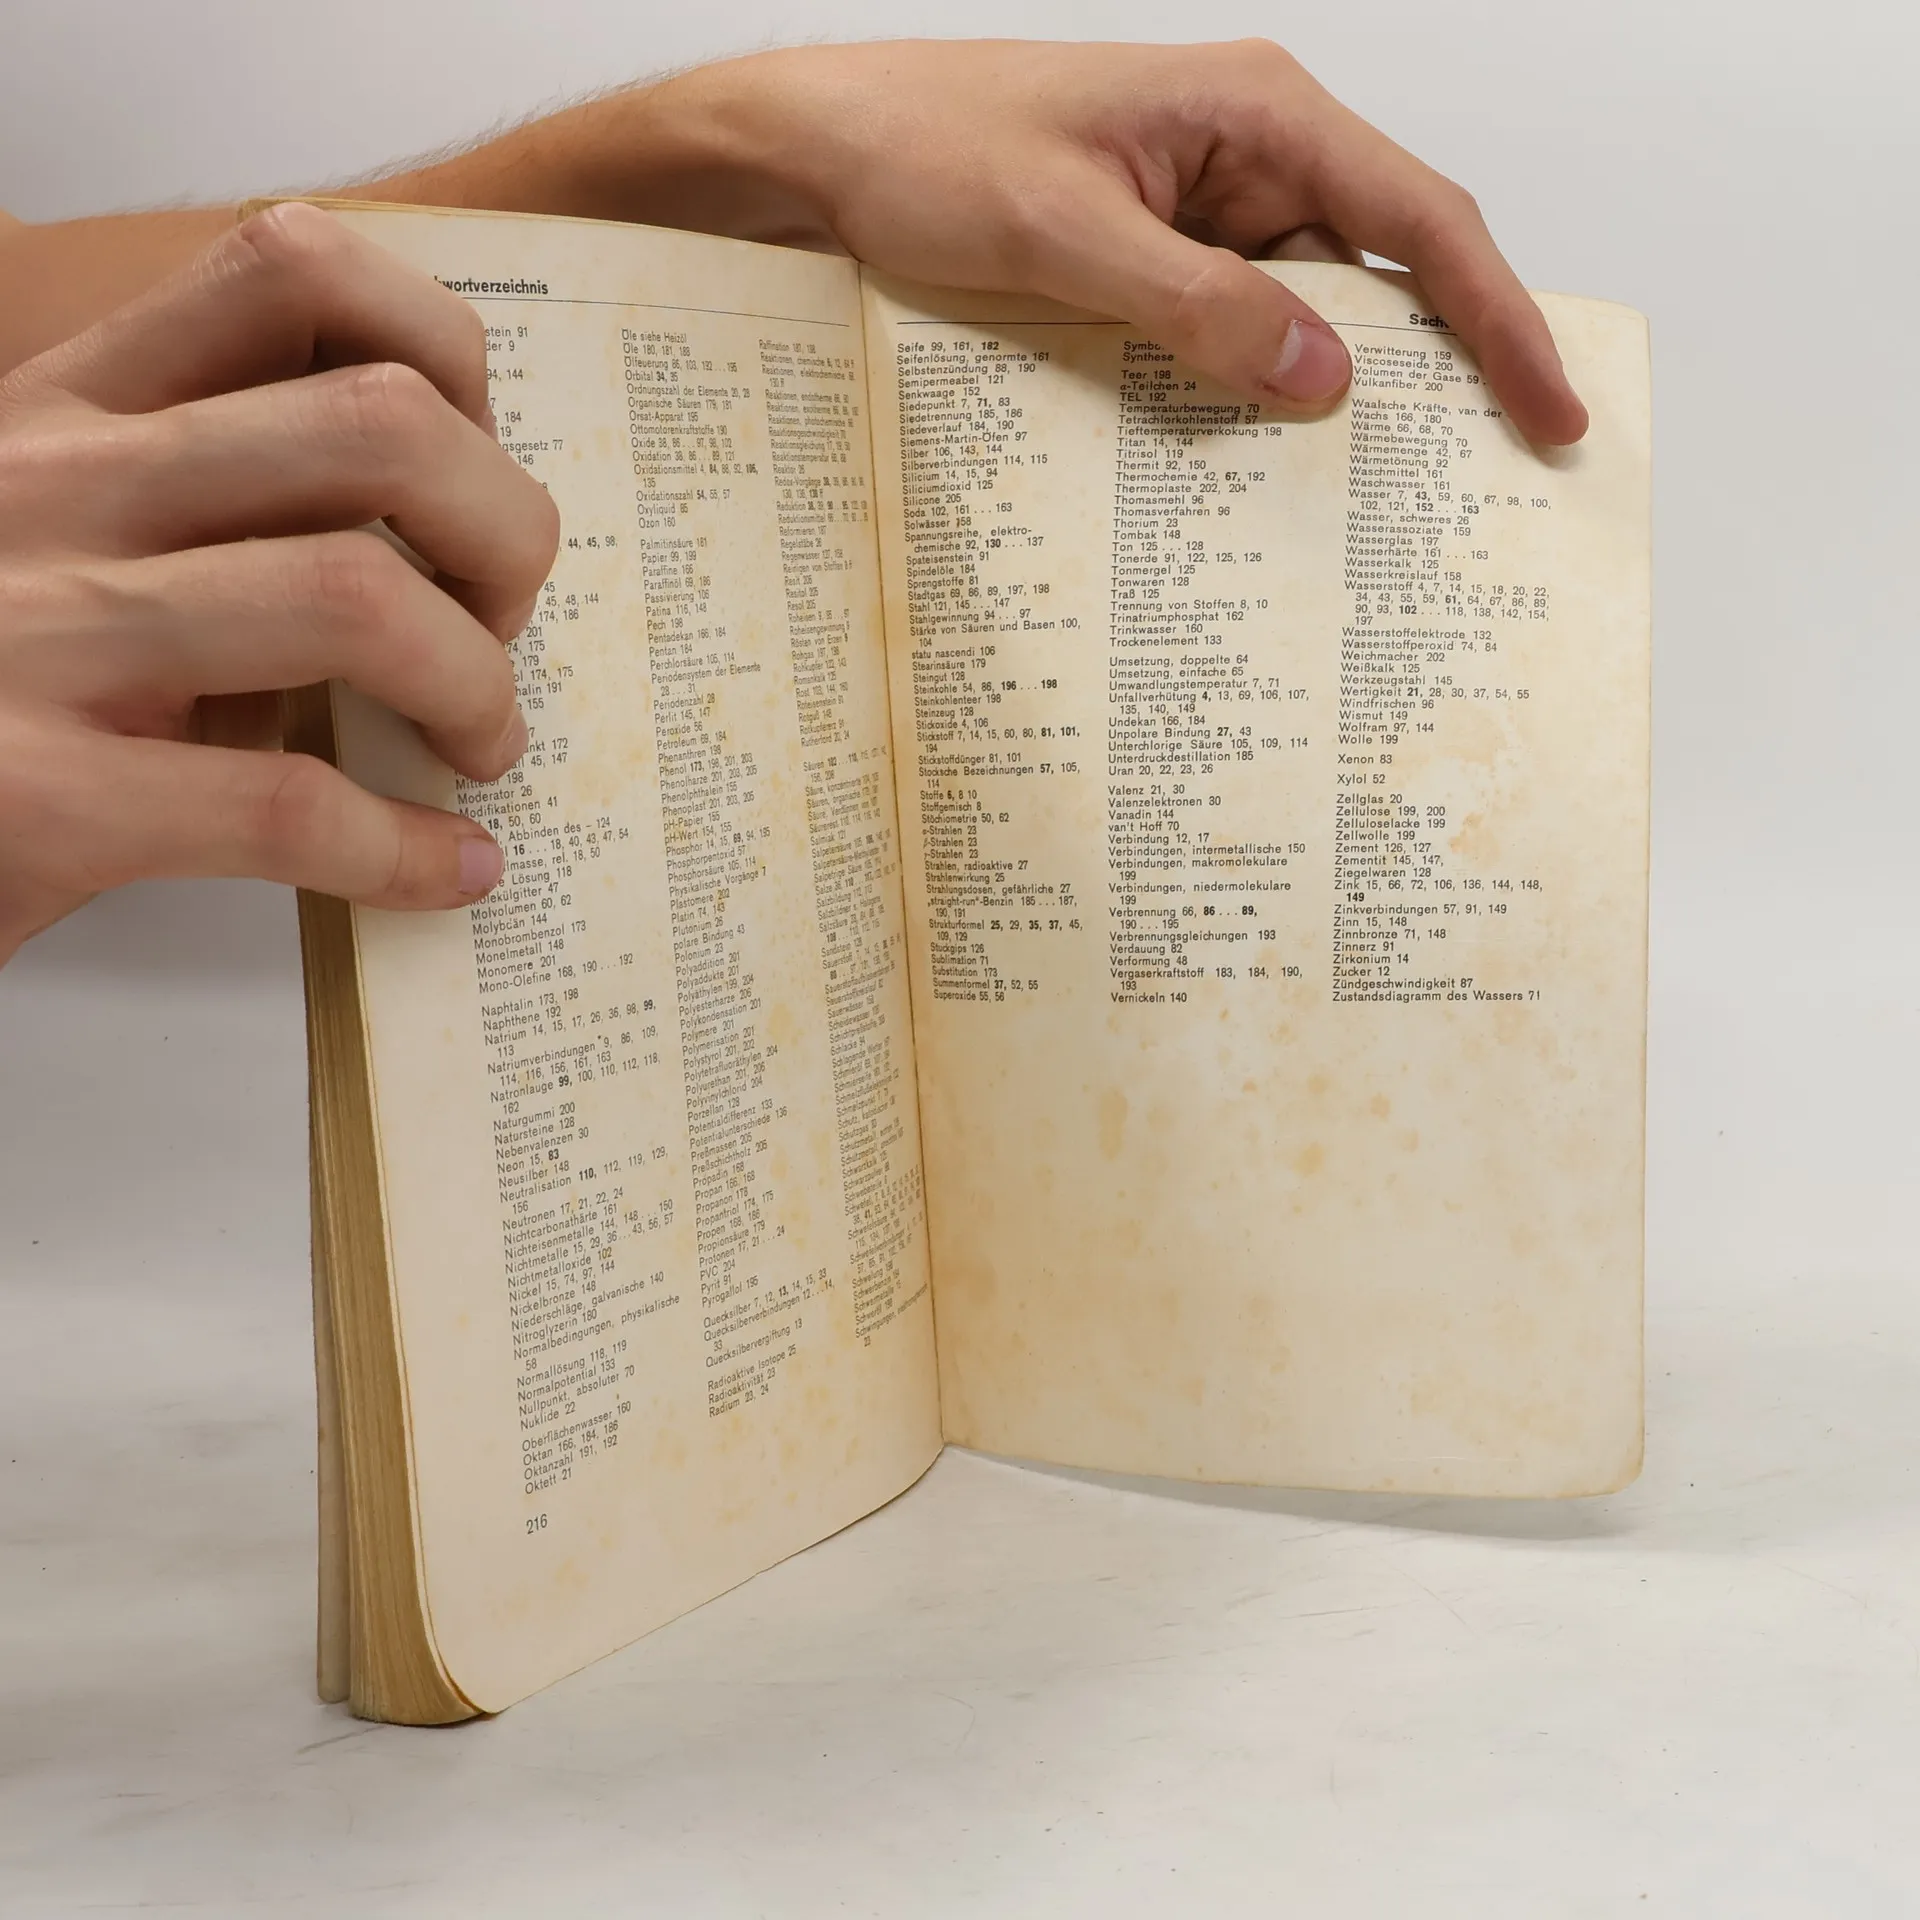 wortverzeichnis
stein 91
der 9
94, 144
184
gsgesetz 77
146
44, 45, 98,
45
45, 48, 144
174, 186
201
74, 175
179
174, 175
halin 191
155
172
45, 147
198
Moderator 26
Modifikationen 41
18, 50, 60
Abbinden des – 124
16 ... 18, 40, 43, 47, 54
lmasse, rel. 18, 50
Lösung 118
Molekülgitter 47
Molvolumen 60, 62
Molybdän 144
Monobrombenzol 173
Monelmetall 148
Monomere 201
Mono-Olefine 168, 190 ... 192
Naphtalin 173, 198
Naphthene 192
Natrium 14, 15, 17, 26, 36, 98, 99,
113
Natriumverbindungen 9, 86, 109,
114, 116, 156, 161, 163
Natronlauge 99, 100, 110, 112, 118,
162
Naturgummi 200
Natursteine 128
Nebenvalenzen 30
Neon 15, 83
Neusilber 148
Neutralisation 110, 112, 119, 129,
156
Neutronen 17, 21, 22, 24
Nichtcarbonathärte 161
Nichteisenmetalle 144, 148 ... 150
Nichtmetalle 15, 29, 36 ... 43, 56, 57
Nichtmetalloxide 102
Nickel 15, 74, 97, 144
Nickelbronze 148
Niederschläge, galvanische 140
Nitroglyzerin 180
Normalbedingungen, physikalische
58
Normallösung 118, 119
Normalpotential 133
Nullpunkt, absoluter 70
Nuklide 22
Oberflächenwasser 160
Oktan 166, 184, 186
Oktanzahl 191, 192
Oktett 21
216
Öle siehe Heizöl
Öle 180, 181, 188
Ölfeuerung 86, 103, 192 ... 195
Orbital 34, 35
Ordnungszahl der Elemente 20, 28
Organische Säuren 179, 181
Orsat-Apparat 195
Ottomotorenkraftstoffe 190
Oxide 38, 86 ... 97, 98, 102
Oxidation 38, 86 ... 89, 121
Oxidationsmittel 4, 84, 88, 92, 106,
135
Oxidationszahl 54, 55, 57
Oxyliquid 85
Ozon 160
Palmitinsäure 181
Papier 99, 199
Paraffine 166
Paraffinöl 69, 186
Passivierung 106
Patina 116, 148
Pech 198
Pentadekan 166, 184
Pentan 184
Perchlorsäure 105, 114
Periodensystem der Elemente
28 ... 31
Periodenzahl 28
Perlit 145, 147
Peroxide 56
Petroleum 69, 184
Phenanthren 198
Phenol 173, 198, 201, 203
Phenolharze 201, 203, 205
Phenolphthalein 155
Phenoplast 201, 203, 205
pH-Papier 155
pH-Wert 154, 155
Phosphor 14, 15, 69, 94, 195
Phosphorpentoxid 57
Phosphorsäure 105, 114
Physikalische Vorgänge 7
Plastomere 202
Platin 74, 143
Plutonium 26
polare Bindung 43
Polonium 23
Polyaddition 201
Polyaddukte 201
Polyäthylen 199, 204
Polyesterharze 206
Polykondensation 201
Polymere 201
Polymerisation 201
Polystyrol 201, 202
Polytetrafluoräthylen 204
Polyurethan 201, 206
Polyvinylchlorid 204
Porzellan 128
Potentialdifferenz 133
Potentialunterschiede 136
Preßmassen 205
Preßschichtholz 205
Propadin 168
Propan 166, 168
Propanon 178
Propantriol 174, 175
Propen 168, 186
Propionsäure 179
Protonen 17, 21 ... 24
PVC 204
Pyrit 91
Pyrogallol 195
Quecksilber 7, 12, 13, 14, 15, 33
Quecksilberverbindungen 12 ... 14,
33
Quecksilbervergiftung 13
Radioaktive Isotope 25
Radioaktivität 23
Radium 23, 24
Raffination 187, 188
Reaktionen, chemische
Reaktionen, elektrochemische
Reaktionen, endotherme
Reaktionen, exotherme
Reaktionen, photochemische
Reaktionsgeschwindigkeit
Reaktionsgleichung
Reaktionstemperatur
Reaktor 26
Redox-Vorgänge
Reduktion
Reduktionsmittel
Reformieren 187
Regelstäbe 26
Regenwasser
Reinigen von Stoffen
Resit 205
Resitol 205
Resol 205
Roheisen
Roheisengewinnung
Rösten von Erzen 9
Rohgas 197, 198
Rohkupfer
Romankalk 125
Rost 103, 144, 160
Roteisenstein 91
Rotguß 148
Rotkupfererz 91
Rutherford 20, 24
Säuren
Säure, konzentrierte
Säuren, organische
Säure, Verdünnen von
Säurerest
Salmiak 121
Salpetersäure
Salpetrige Säure
Salze
Salzbildung
Salzbildner s. Halogene
Salzsäure
Sandstein 128
Sauerstoff
Scheidewasser
Schichtpreßstoffe
Schlacke 94
Schlagende Wetter
Schmieröl
Schmierseife
Schmelzflußelektrolyse
Schmelzpunkt
Schutzgas
Schwarzkalk 125
Schwarzpulver
Schwebeteile
Schwefel
Schwefelsäure
Schwefelverbindungen
Schwelung 198
Schwerbenzin 184
Schwermetalle 15
Schweröl 198
Schwingungen,
23
Sach
Seife 99, 161, 182
Seifenlösung, genormte 161
Selbstenzündung 88, 190
Semipermeabel 121
Senkwaage 152
Siedepunkt 7, 71, 83
Siedetrennung 185, 186
Siedeverlauf 184, 190
Siemens-Martin-Öfen 97
Silber 106, 143, 144
Silberverbindungen 114, 115
Silicium 14, 15, 94
Siliciumdioxid 125
Silicone 205
Soda 102, 161 ... 163
Solwässer 158
Spannungsreihe, elektro-
chemische 92, 130 ... 137
Spateisenstein 91
Spindelöle 184
Sprengstoffe 81
Stadtgas 69, 86, 89, 197, 198
Stahl 121, 145 ... 147
Stahlgewinnung 94 ... 97
Stärke von Säuren und Basen 100,
104
statu nascendi 106
Stearinsäure 179
Steingut 128
Steinkohle 54, 86, 196 ... 198
Steinkohlenteer 198
Steinzeug 128
Stickoxide 4, 106
Stickstoff 7, 14, 15, 60, 80, 81, 101,
194
Stickstoffdünger 81, 101
Stocksche Bezeichnungen 57, 105,
114
Stoffe 6, 8 10
Stoffgemisch 8
Stöchiometrie 50, 62
α-Strahlen 23
β-Strahlen 23
γ-Strahlen 23
Strahlen, radioaktive 27
Strahlenwirkung 25
Strahlungsdosen, gefährliche 27
„straight-run"-Benzin 185 ... 187,
190, 191
Strukturformel 25, 29, 35, 37, 45,
109, 129
Stuckgips 126
Sublimation 71
Substitution 173
Summenformel 37, 52, 55
Superoxide 55, 56
Symbo
Synthese
Teer 198
α-Teilchen 24
TEL 192
Temperaturbewegung 70
Tetrachlorkohlenstoff 57
Tieftemperaturverkokung 198
Titan 14, 144
Titrisol 119
Thermit 92, 150
Thermochemie 42, 67, 192
Thermoplaste 202, 204
Thomasmehl 96
Thomasverfahren 96
Thorium 23
Tombak 148
Ton 125 ... 128
Tonerde 91, 122, 125, 126
Tonmergel 125
Tonwaren 128
Traß 125
Trennung von Stoffen 8, 10
Trinatriumphosphat 162
Trinkwasser 160
Trockenelement 133
Umsetzung, doppelte 64
Umsetzung, einfache 65
Umwandlungstemperatur 7, 71
Unfallverhütung 4, 13, 69, 106, 107,
135, 140, 149
Undekan 166, 184
Unpolare Bindung 27, 43
Unterchlorige Säure 105, 109, 114
Unterdruckdestillation 185
Uran 20, 22, 23, 26
Valenz 21, 30
Valenzelektronen 30
Vanadin 144
van't Hoff 70
Verbindung 12, 17
Verbindungen, intermetallische 150
Verbindungen, makromolekulare
199
Verbindungen, niedermolekulare
199
Verbrennung 66, 86 ... 89,
190 ... 195
Verbrennungsgleichungen 193
Verdauung 82
Verformung 48
Vergaserkraftstoff 183, 184, 190,
193
Vernickeln 140
Verwitterung 159
Viscoseseide 200
Volumen der Gase 59
Vulkanfiber 200
Waalsche Kräfte, van der
Wachs 166, 180
Wärme 66, 68, 70
Wärmebewegung 70
Wärmemenge 42, 67
Wärmetönung 92
Waschmittel 161
Waschwasser 161
Wasser 7, 43, 59, 60, 67, 98, 100,
102, 121, 152 ... 163
Wasser, schweres 26
Wasserassoziate 159
Wasserglas 197
Wasserhärte 161 ... 163
Wasserkalk 125
Wasserkreislauf 158
Wasserstoff 4, 7, 14, 15, 18, 20, 22,
34, 43, 55, 59, 61, 64, 67, 86, 89,
90, 93, 102 ... 118, 138, 142, 154,
197
Wasserstoffelektrode 132
Wasserstoffperoxid 74, 84
Weichmacher 202
Weißkalk 125
Werkzeugstahl 145
Wertigkeit 21, 28, 30, 37, 54, 55
Windfrischen 96
Wismut 149
Wolfram 97, 144
Wolle 199
Xenon 83
Xylol 52
Zellglas 20
Zellulose 199, 200
Zelluloselacke 199
Zellwolle 199
Zement 126, 127
Zementit 145, 147,
Ziegelwaren 128
Zink 15, 66, 72, 106, 136, 144, 148,
149
Zinkverbindungen 57, 91, 149
Zinn 15, 148
Zinnbronze 71, 148
Zinnerz 91
Zirkonium 14
Zucker 12
Zündgeschwindigkeit 87
Zustandsdiagramm des Wassers 71